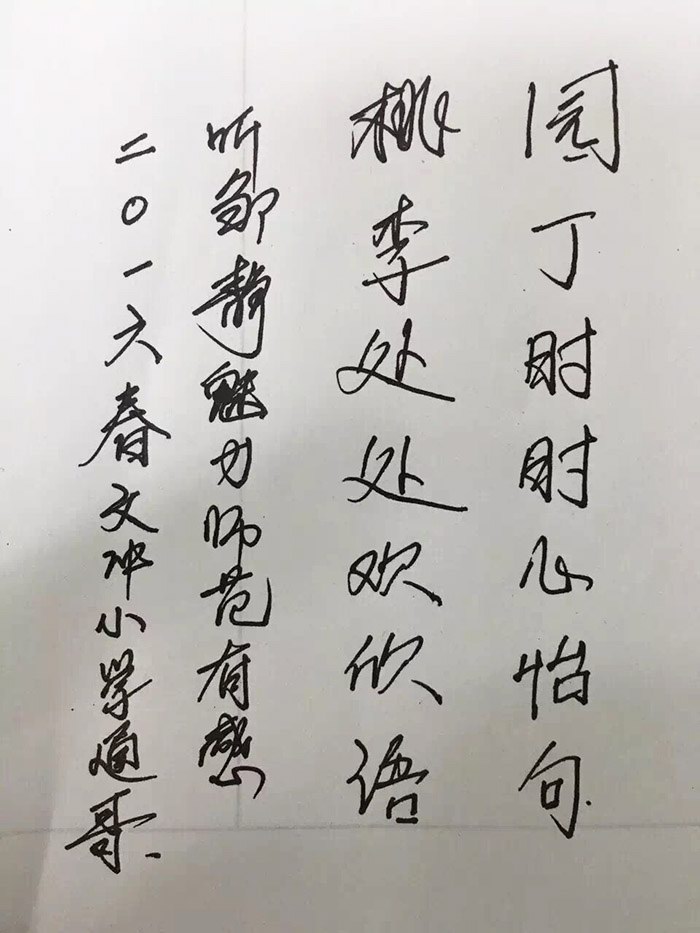 园丁时时心怡句
桃李处处欢欣语
听邹静魅力师范有感
二〇一六春文冲小学通哥